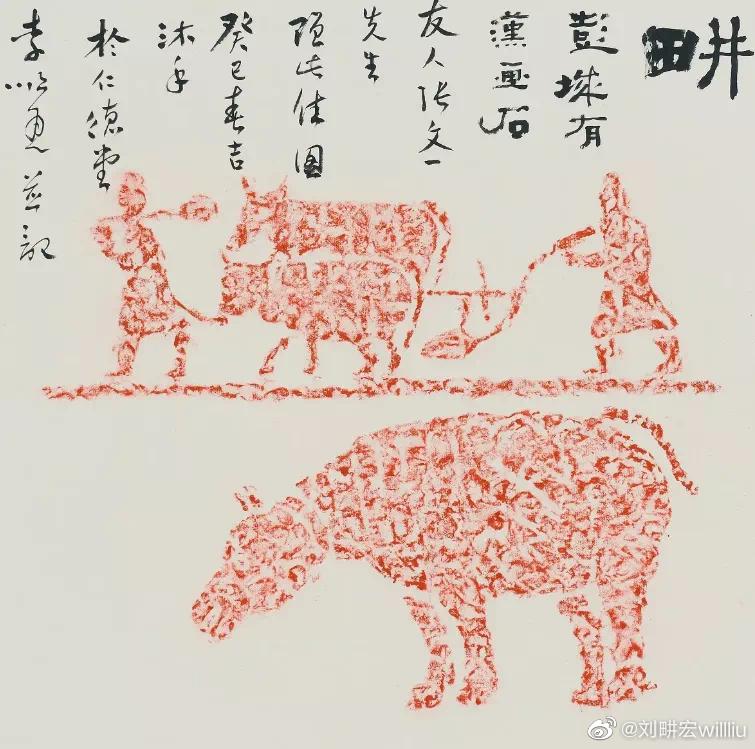 畊
彭城有
漢画石
友人张文一
先生
此佳圖
癸巳春吉
沐手
於仁德堂
李並記
@刘畊宏willliu